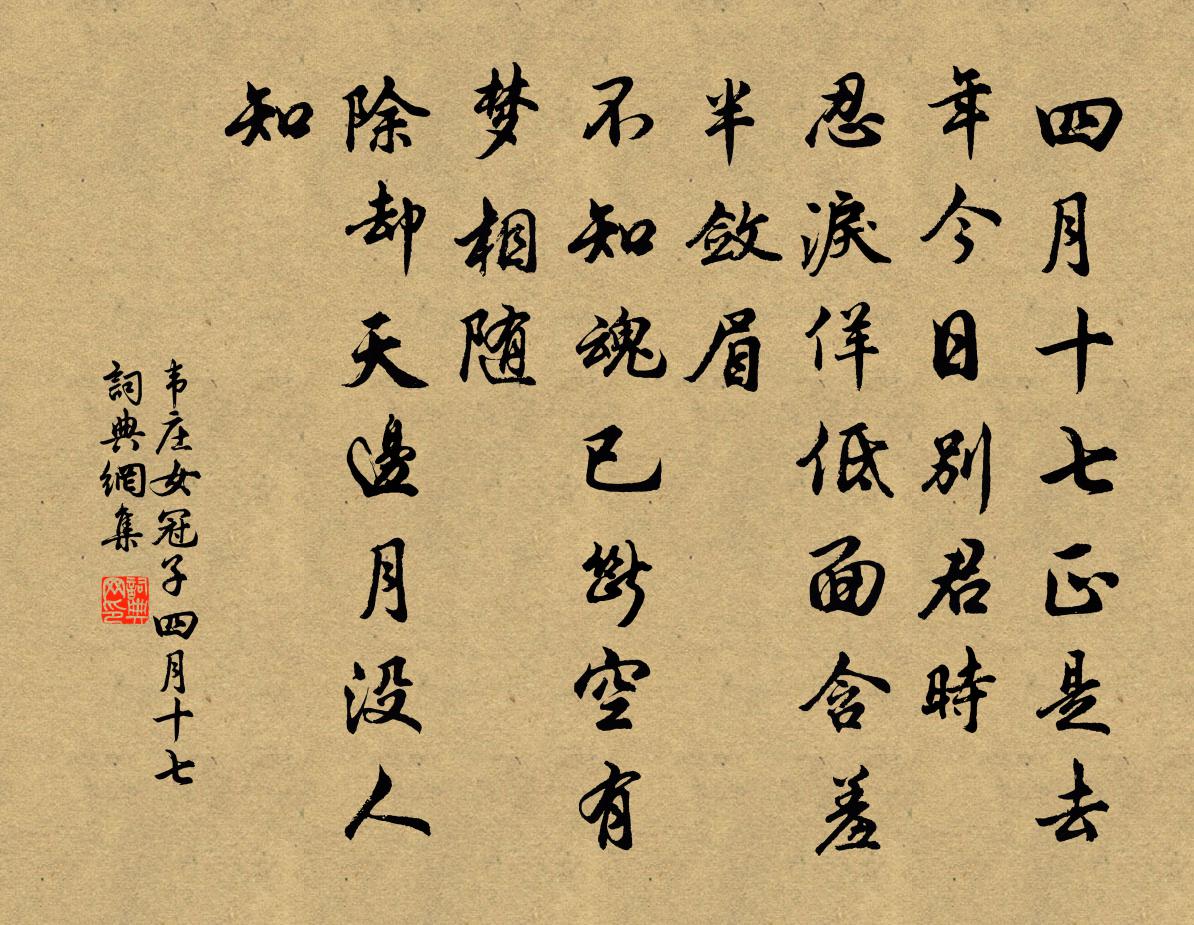 四月十七正是去
年今日别君時
忍淚佯低面含羞
半斂眉
不知魂已斷空有
梦相随
除却天邊月没人
知
韦庄女冠子四月十七
詞典網集
詞典
网印